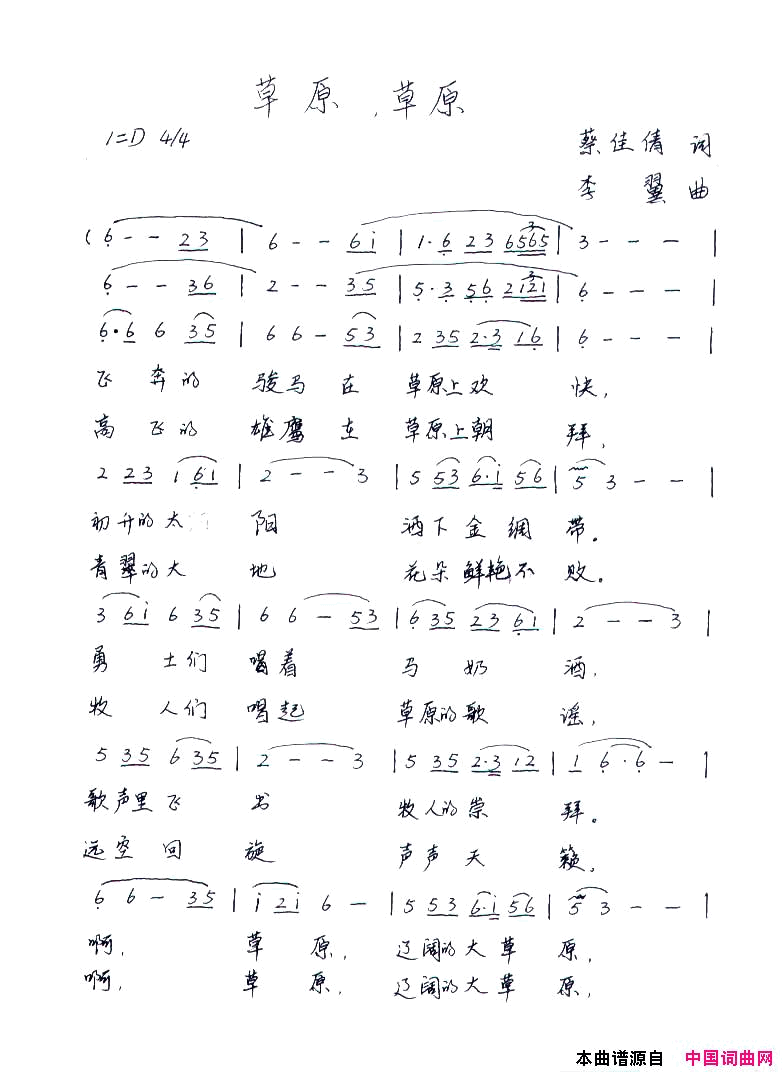 草原，草原
1=D 4/4
蔡佳倩 词
李翼 曲
( 6 - - 23 | 6 - - 6i | 1·6 23 6565 | 3 - - - |
6 - - 36 | 2 - - 35 | 5·3 56 2121 | 6 - - - |
6·6 6 35 | 6 6 - 53 | 2 35 2·3 16 | 6 - - - |
飞奔的 骏马在 草原上欢 快，
高飞的 雄鹰在 草原上朝 拜，
2 23 1 61 | 2 - - 3 | 5 53 6·i 56 | 5 3 - - |
初升的太 阳 洒下金绸 带。
青翠的大 地 花朵鲜艳不 败。
3 6i 6 35 | 6 6 - 53 | 6 35 23 61 | 2 - - 3 |
勇士们 喝着 马奶 酒，
牧人们 喝起 草原的歌 谣，
5 35 6 35 | 2 - - 3 | 5 35 2·3 12 | 1 6·6 - |
歌声里飞 出 牧人的崇 拜。
远空回 旋 声声天 籁，
6 6 - 35 | i 2i 6 - | 5 53 6·i 56 | 5 3 - - |
啊， 草原， 辽阔的大草 原，
啊， 草原， 辽阔的大草 原，
本曲谱源自 中国词曲网